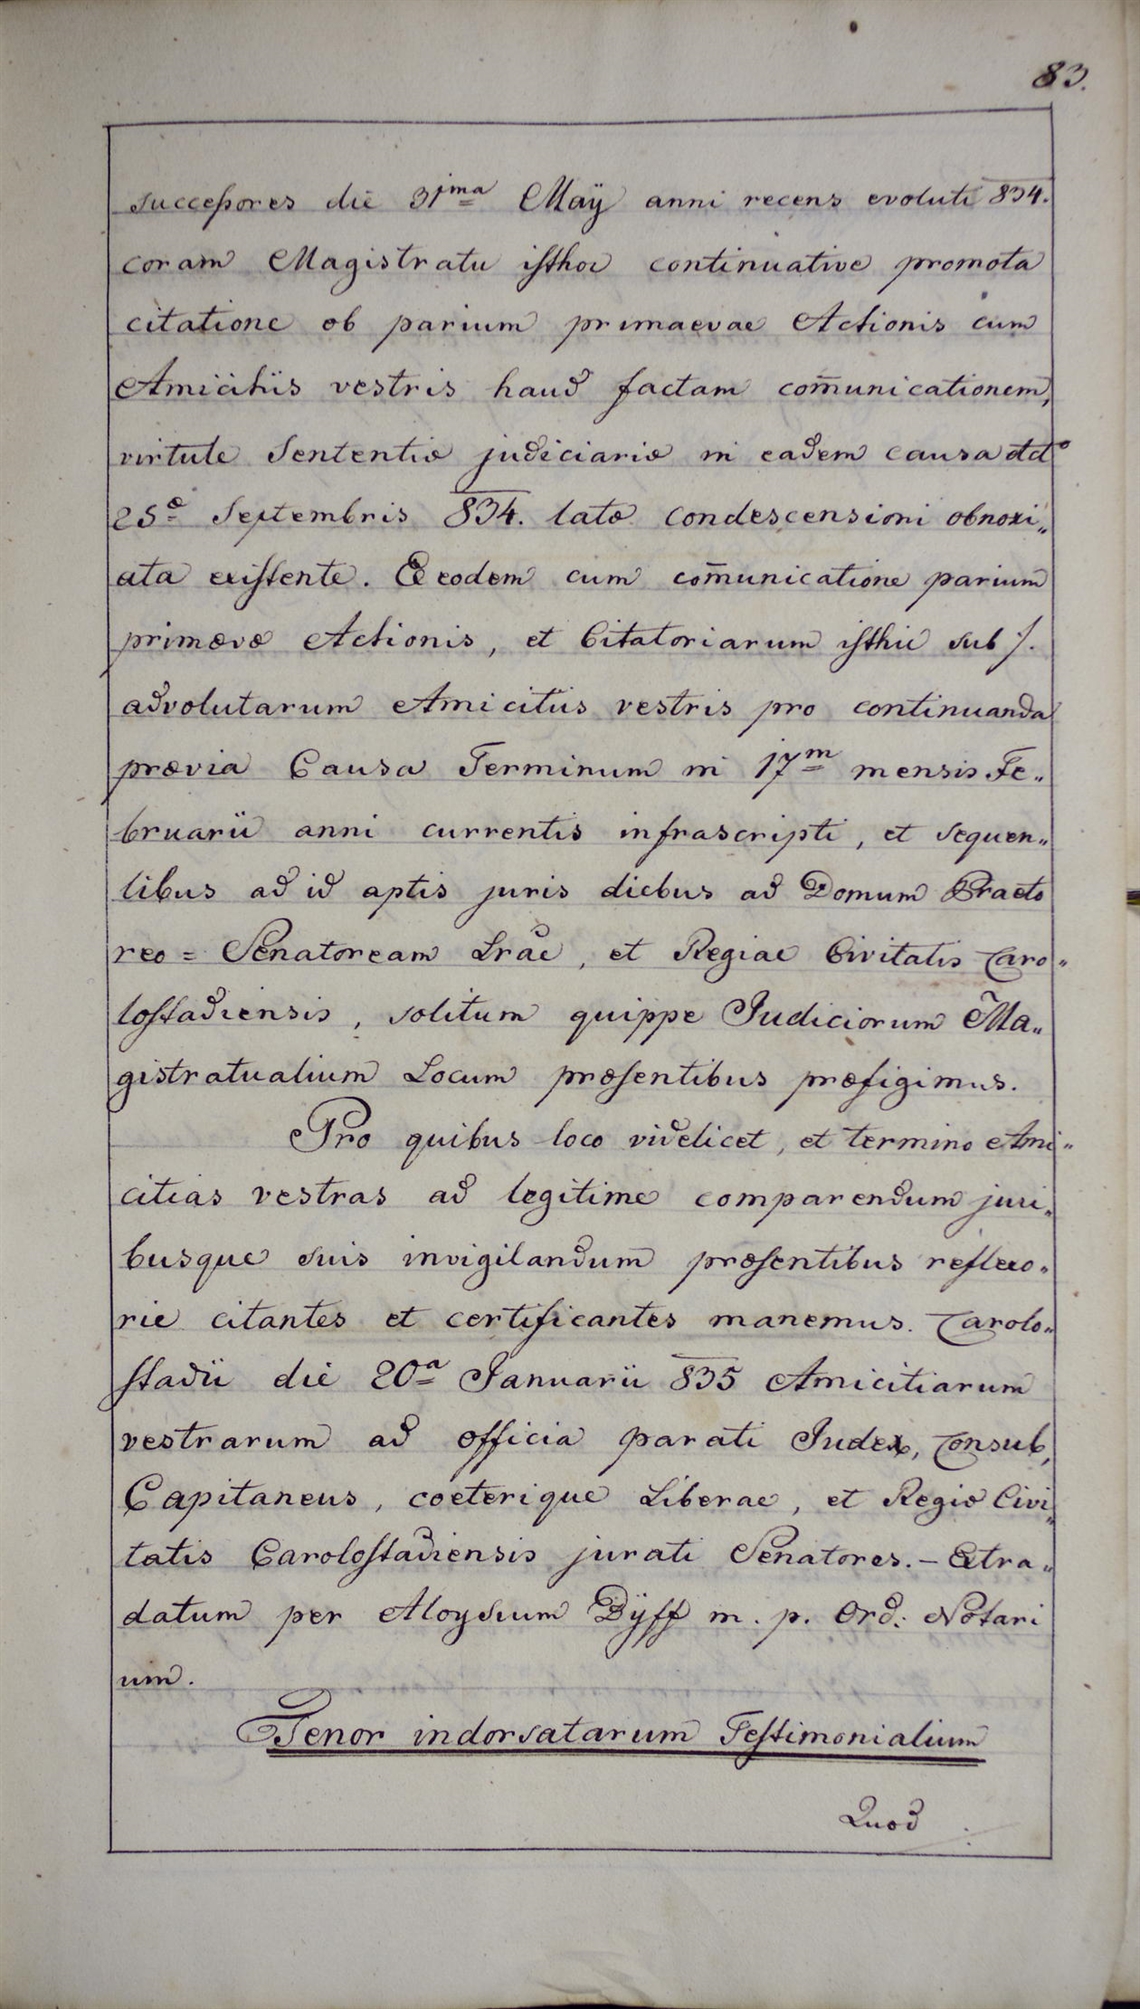 83.
succeſsores die 31ma Maÿ anni recens evoluti 834.
coram Magistratu iſthoc continuative promota
citatione ob parium primaevae Actionis cum
Amicitiis vestris haud factam com̄unicationem,
virtute Sententiæ judiciariæ in eadem causa ddto
25a Septembris 834. latæ condescensioni obnoxi„
ata exiſtente. Ex eodem cum com̄unicatione parium
primævæ Actionis, et Citatoriarum iſthic sub ./.
advolutarum Amicitiis vestris pro continuanda
prævia Causa Terminum in 17m mensis Fe„
bruarii anni currentis infrascripti, et sequen„
tibus ad id aptis juris diebus ad Domum Praeto
reo = Senatoream Lrae, et Regiae Civitatis Caro„
loſtadiensis, solitum quippe Judiciorum Ma„
gistratualium Locum præſentibus præfigimus.
Pro quibus loco videlicet, et termino Ami„
citias vestras ad legitime comparendum juri„
busque suis invigilandum præſentibus reflexo„
rie citantes et certificantes manemus. Carolo„
ſtadii die 20a Januarii 835 Amicitiarum
vestrarum ad officia parati Judex, Consul,
Capitaneus, coeterique Liberae, et Regiæ Civi„
tatis Caroloſtadiensis jurati Senatores. – Extra„
datum per Aloysium Dÿff m. p. Ord: Notari
um.
Tenor indorsatarum Teſtimonialium
Quod